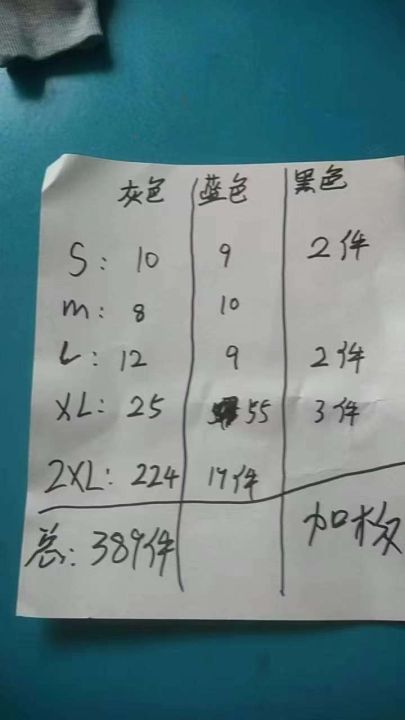 灰色 蓝色 黑色
S: 10 9 2件
m: 8 10
L: 12 9 2件
XL: 25 55 3件
2XL: 224 17件
总: 389件 加